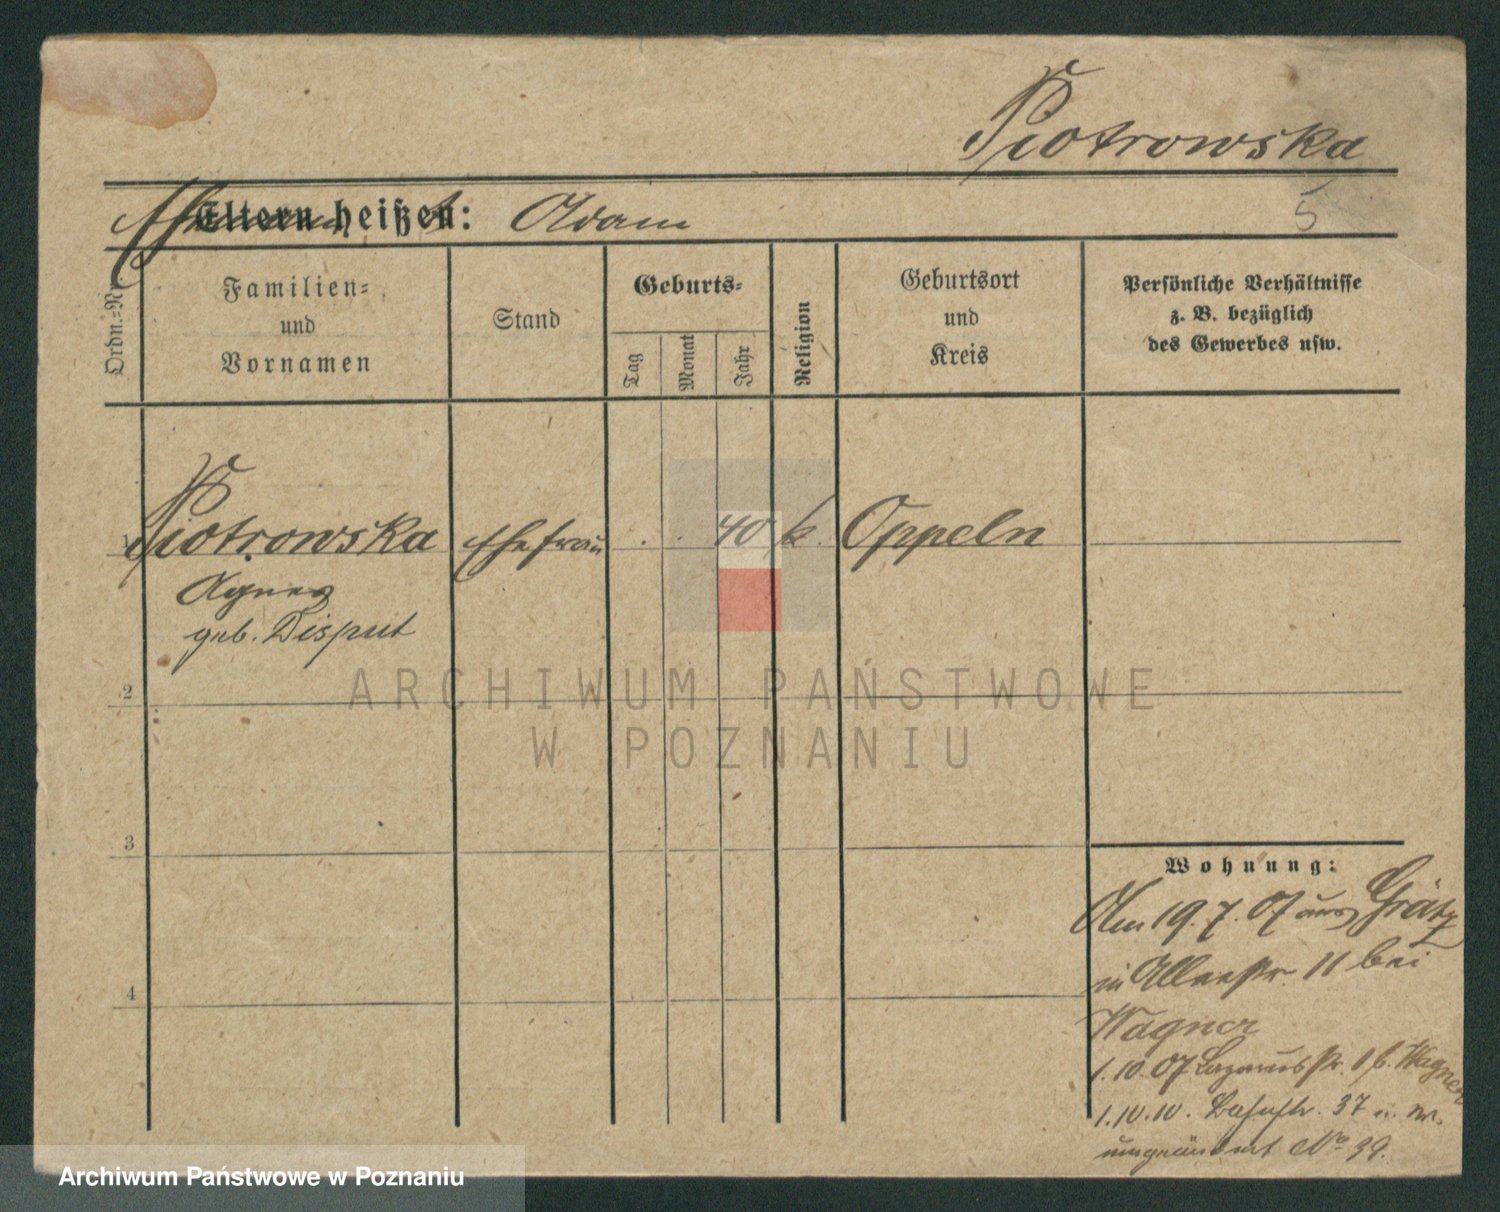 Piotrowska
Eltern heißen: Adam
5
Ordn.-Nr.
Familien-
und
Vornamen
Stand
Geburts-
Tag
Monat
Jahr
Religion
Geburtsort
und
Kreis
Persönliche Verhältnisse
z. B. bezüglich
des Gewerbes usw.
1 Piotrowska Ehefrau . . 40 k. Oppeln
Agnes
geb. Disput
2
ARCHIWUM PAŃSTWOWE
W POZNANIU
3
Wohnung:
Am 19.7.07 aus Grätz
in Alleestr. 11 bei
Wagner
1.10.07 Lazarusstr. 1 b. Wagner
1.10.10. Bahnstr. 37 u. nr.
umgeändert No 39.
4
Archiwum Państwowe w Poznaniu